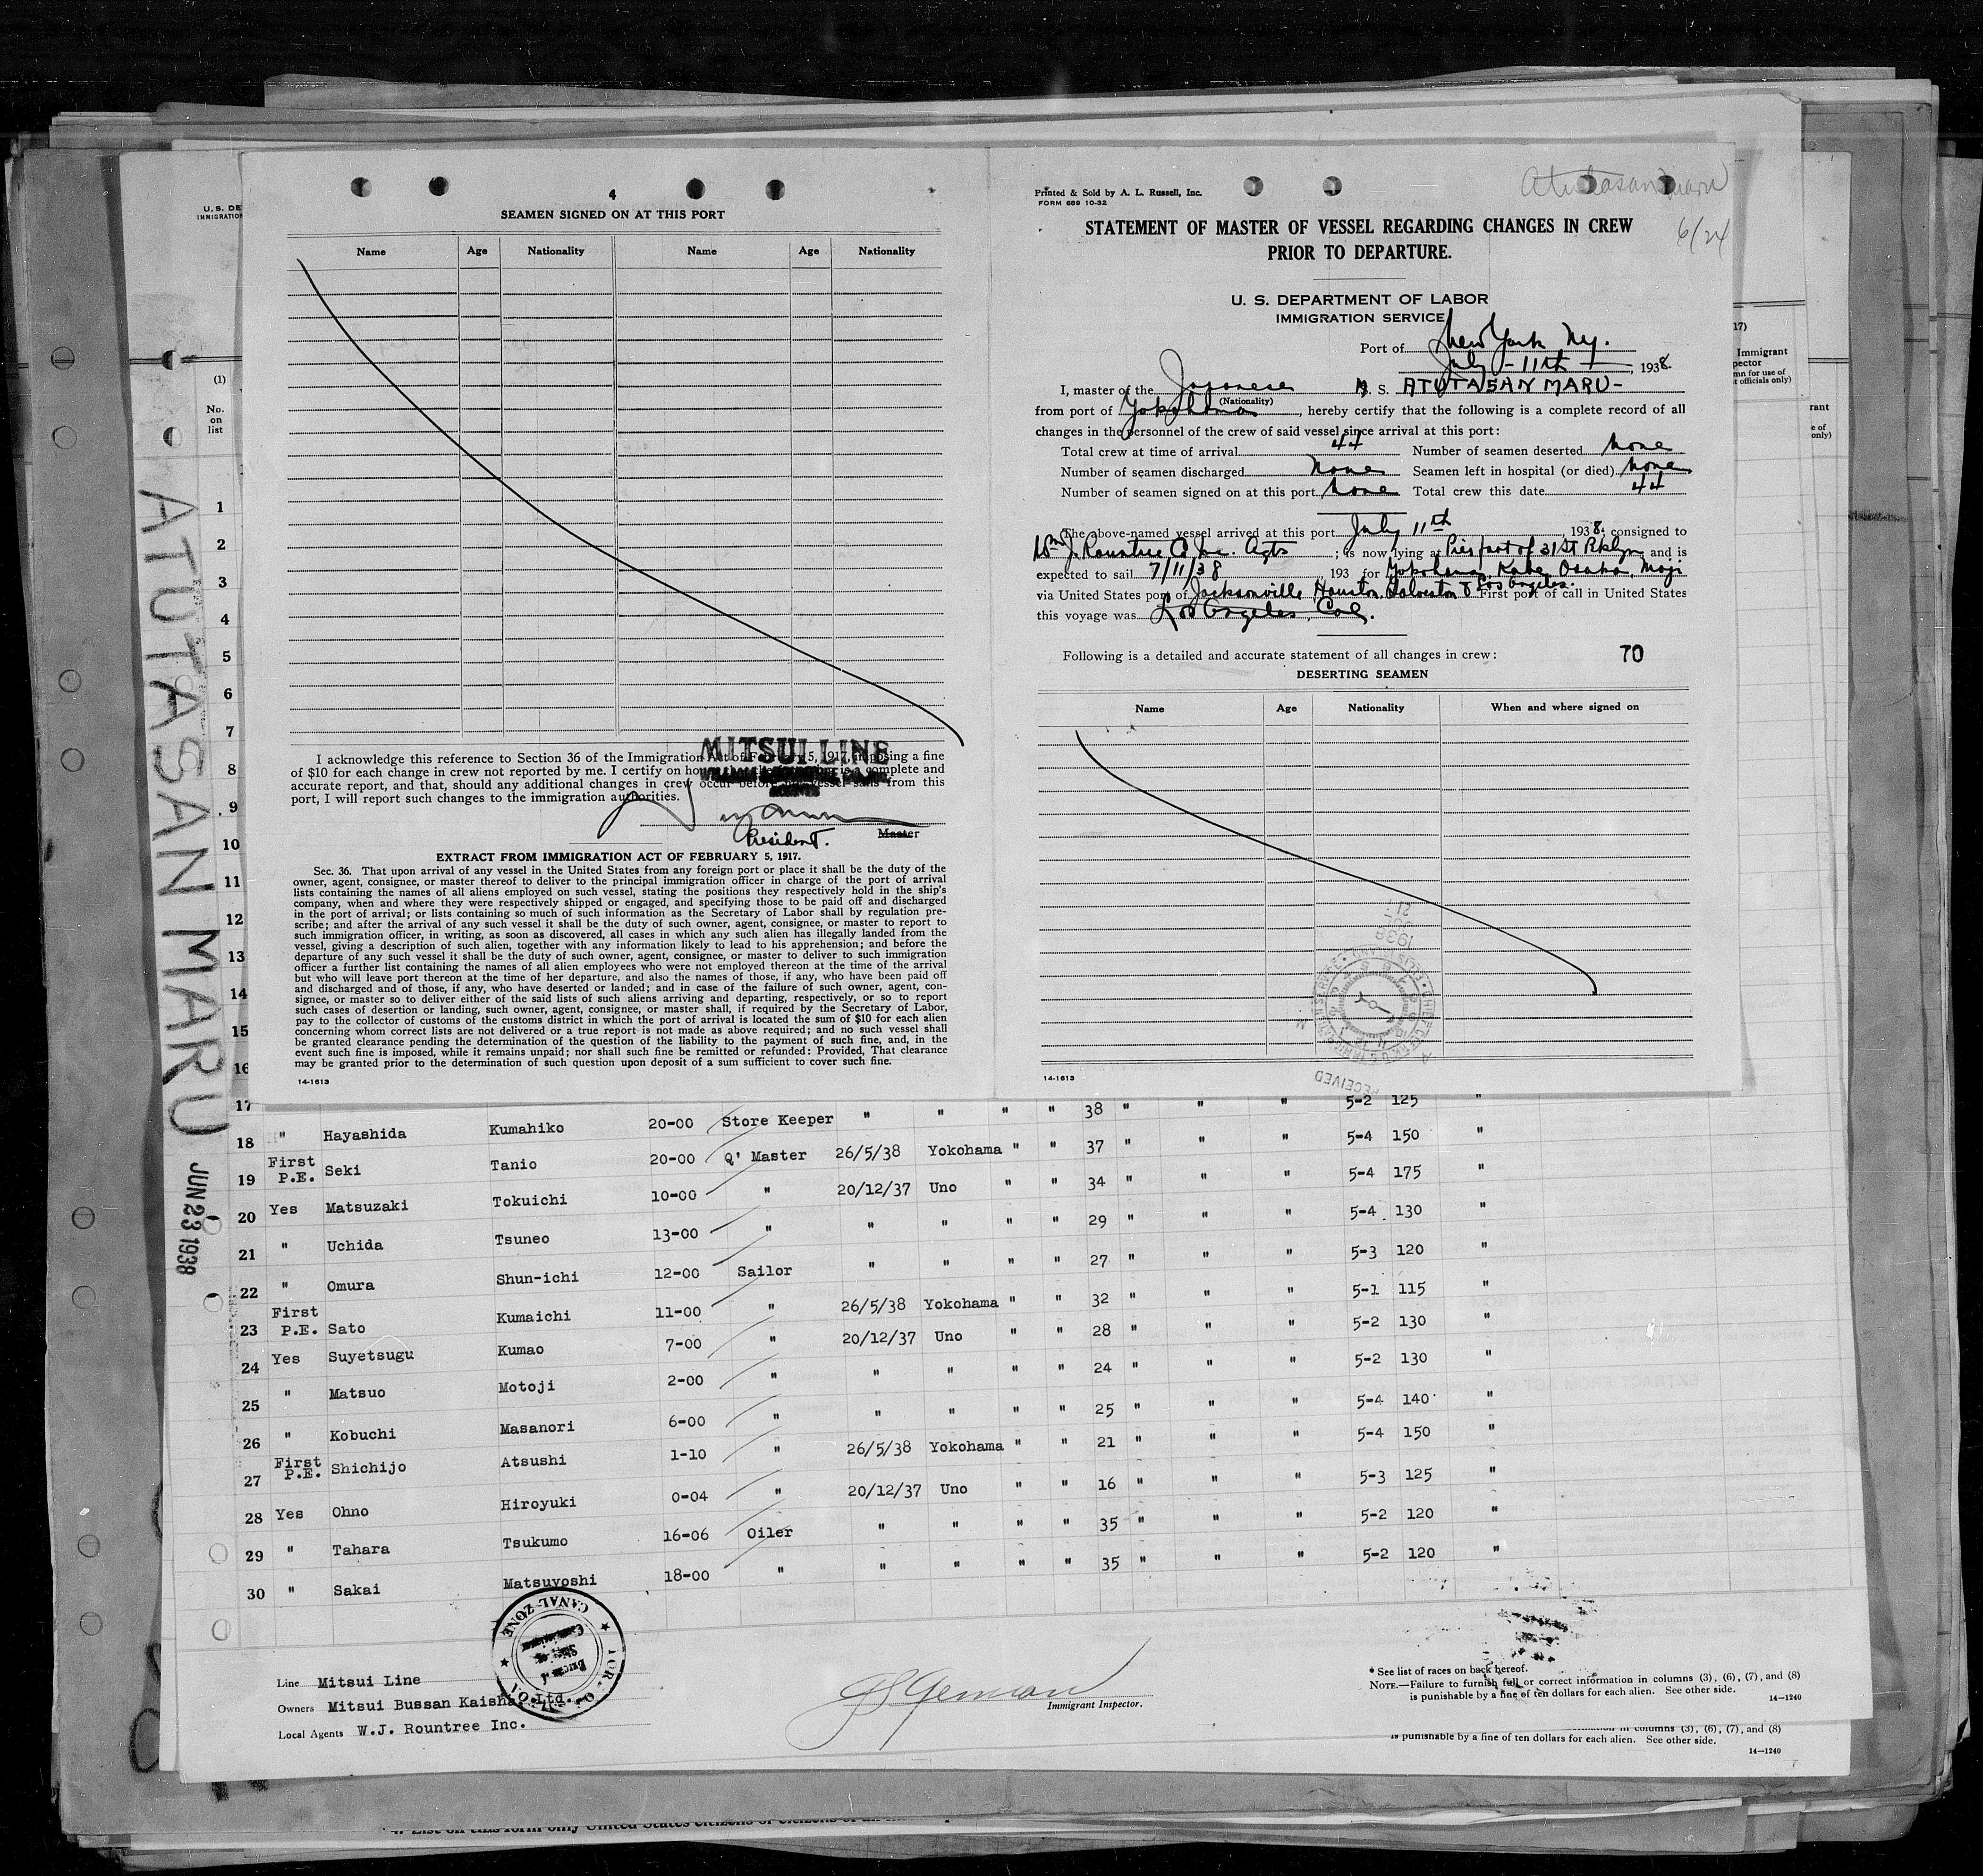 4
SEAMEN SIGNED ON AT THIS PORT
Name Age Nationality Name Age Nationality
I acknowledge this reference to Section 36 of the Immigration Act of February 5, 1917, imposing a fine
of $10 for each change in crew not reported by me. I certify on
complete and
accurate report, and that, should any additional changes in crew occur before vessel sails from this
port, I will report such changes to the immigration authorities.
MITSUI LINE
President.
Master
EXTRACT FROM IMMIGRATION ACT OF FEBRUARY 5, 1917.
Sec. 36. That upon arrival of any vessel in the United States from any foreign port or place it shall be the duty of the
owner, agent, consignee, or master thereof to deliver to the principal immigration officer in charge of the port of arrival
lists containing the names of all aliens employed on such vessel, stating the positions they respectively hold in the ship's
company, when and where they were respectively shipped or engaged, and specifying those to be paid off and discharged
in the port of arrival; or lists containing so much of such information as the Secretary of Labor shall by regulation pre-
scribe; and after the arrival of any such vessel it shall be the duty of such owner, agent, consignee, or master to report to
such immigration officer, in writing, as soon as discovered, all cases in which any such alien has illegally landed from the
vessel, giving a description of such alien, together with any information likely to lead to his apprehension; and before the
departure of any such vessel it shall be the duty of such owner, agent, consignee, or master to deliver to such immigration
officer a further list containing the names of all alien employees who were not employed thereon at the time of the arrival
but who will leave port thereon at the time of her departure, and also the names of those, if any, who have been paid off
and discharged and of those, if any, who have deserted or landed; and in case of the failure of such owner, agent, con-
signee, or master so to deliver either of the said lists of such aliens arriving and departing, respectively, or so to report
such cases of desertion or landing, such owner, agent, consignee, or master shall, if required by the Secretary of Labor,
pay to the collector of customs of the customs district in which the port of arrival is located the sum of $10 for each alien
concerning whom correct lists are not delivered or a true report is not made as above required; and no such vessel shall
be granted clearance pending the determination of the question of the liability to the payment of such fine, and, in the
event such fine is imposed, while it remains unpaid; nor shall such fine be remitted or refunded: Provided, That clearance
may be granted prior to the determination of such question upon deposit of a sum sufficient to cover such fine.
14-1613
Printed & Sold by A. L. Russell, Inc.
FORM 689 10-32
Atutasan Maru
6/24
STATEMENT OF MASTER OF VESSEL REGARDING CHANGES IN CREW
PRIOR TO DEPARTURE.
U. S. DEPARTMENT OF LABOR
IMMIGRATION SERVICE
Port of New York Ny.
July - 11th, 1938.
I, master of the Japanese M. S. ATUTASAN MARU-
(Nationality)
from port of Yokohama, hereby certify that the following is a complete record of all
changes in the personnel of the crew of said vessel since arrival at this port:
Total crew at time of arrival 44 Number of seamen deserted None
Number of seamen discharged None Seamen left in hospital (or died) None
Number of seamen signed on at this port None Total crew this date 44
The above-named vessel arrived at this port July 11th, 1938. consigned to
Wm J. Rountree Co Inc. Agts; is now lying at Pier foot of 31st Bklyn and is
expected to sail 7/11/38 193 for Yokohama, Kobe, Osaka, Moji
via United States port of Jacksonville, Houston, Galveston & Los Angeles. First port of call in United States
this voyage was Los Angeles, Cal.
Following is a detailed and accurate statement of all changes in crew: 70
DESERTING SEAMEN
Name Age Nationality When and where signed on
RECEIVED
1938
14-1613
U. S. DE
IMMIGRATION
(1)
No.
on
list
17)
Immigrant
pector
mn for use of
t officials only)
rant
e of
only)
ATUTASAN MARU
JUN 23 1938
1
2
3
4
5
6
7
8
9
10
11
12
13
14
15
16
17 5-2 125 "
18 " Hayashida Kumahiko 20-00 Store Keeper " " " " 38 " " " 5-4 150 "
19 First P.E. Seki Tanio 20-00 Q' Master 26/5/38 Yokohama " " 37 " " " 5-4 175 "
20 Yes Matsuzaki Tokuichi 10-00 " 20/12/37 Uno " " 34 " " " 5-4 130 "
21 " Uchida Tsuneo 13-00 " " " " " 29 " " " 5-3 120 "
22 " Omura Shun-ichi 12-00 Sailor " " " " 27 " " " 5-1 115 "
23 First P.E. Sato Kumaichi 11-00 " 26/5/38 Yokohama " " 32 " " " 5-2 130 "
24 Yes Suyetsugu Kumao 7-00 " 20/12/37 Uno " " 28 " " " 5-2 130 "
25 " Matsuo Motoji 2-00 " " " " " 24 " " " 5-4 140 "
26 " Kobuchi Masanori 6-00 " " " " " 25 " " " 5-4 150 "
27 First P.E. Shichijo Atsushi 1-10 " 26/5/38 Yokohama " " 21 " " " 5-3 125 "
28 Yes Ohno Hiroyuki 0-04 " 20/12/37 Uno " " 16 " " " 5-2 120 "
29 " Tahara Tsukumo 16-06 Oiler " " " " 35 " " " 5-2 120 "
30 " Sakai Matsuyoshi 18-00 " " " " " 35 " " "
CANAL ZONE
Line Mitsui Line
Owners Mitsui Bussan Kaisha, Ltd.
Local Agents W.J. Rountree Inc.
Immigrant Inspector.
* See list of races on back hereof.
NOTE.—Failure to furnish full or correct information in columns (3), (6), (7), and (8)
is punishable by a fine of ten dollars for each alien. See other side.
14-1240
in columns (3), (6), (7), and (8)
is punishable by a fine of ten dollars for each alien. See other side.
14-1240